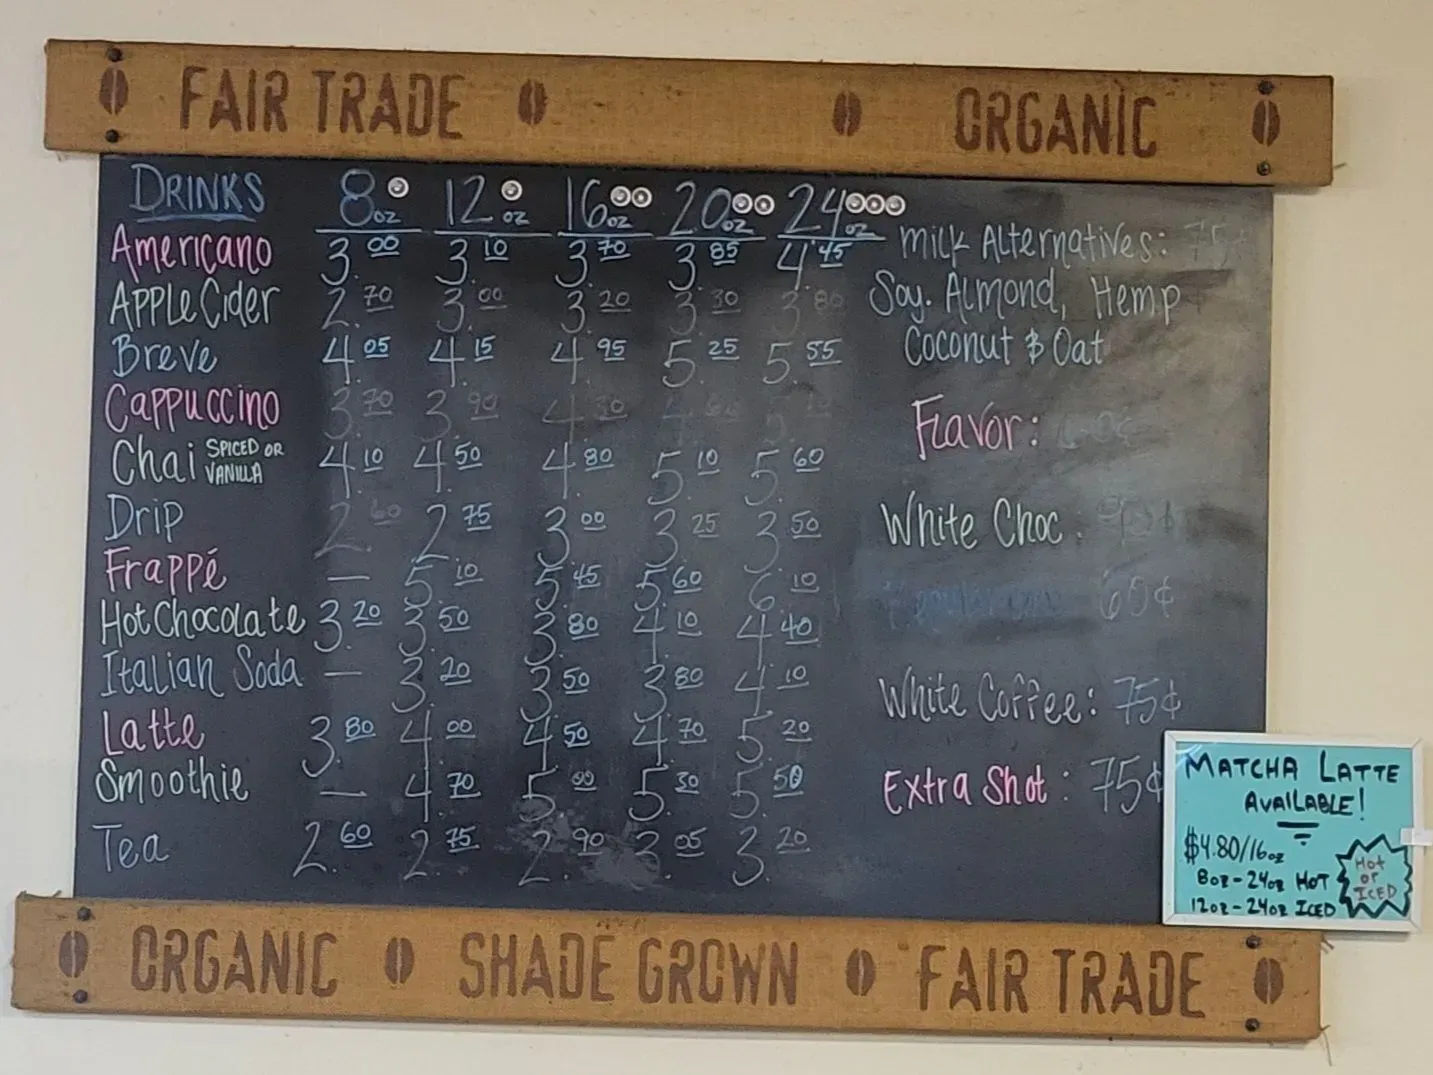 FAIR TRADE ORGANIC
DRINKS 8oz 12oz 16oz 20oz 24oz
Americano 3.00 3.10 3.70 3.85 4.45
Apple Cider 2.70 3.00 3.20 3.30 3.80
Breve 4.05 4.15 4.95 5.25 5.55
Cappuccino 3.70 3.90 4. 4. 5.
Chai SPICED OR VANILLA 4.10 4.50 4.80 5.10 5.60
Drip 2.60 2.75 3.00 3.25 3.50
Frappé — 5.10 5.45 5.60 6.10
Hot Chocolate 3.20 3.50 3.80 4.10 4.40
Italian Soda — 3.20 3.50 3.80 4.10
Latte 3.80 4.00 4.50 4.70 5.20
Smoothie — 4.70 5.00 5.30 5.50
Tea 2.60 2.75 2.90 3.05 3.20
Milk Alternatives: 75¢
Soy. Almond, Hemp
Coconut & Oat
Flavor:
White Choc:
65¢
White Coffee: 75¢
Extra Shot: 75¢
MATCHA LATTE
AVAILABLE!
$4.80/16oz
8oz-24oz HOT
12oz-24oz ICED
Hot
or
ICED
ORGANIC SHADE GROWN FAIR TRADE